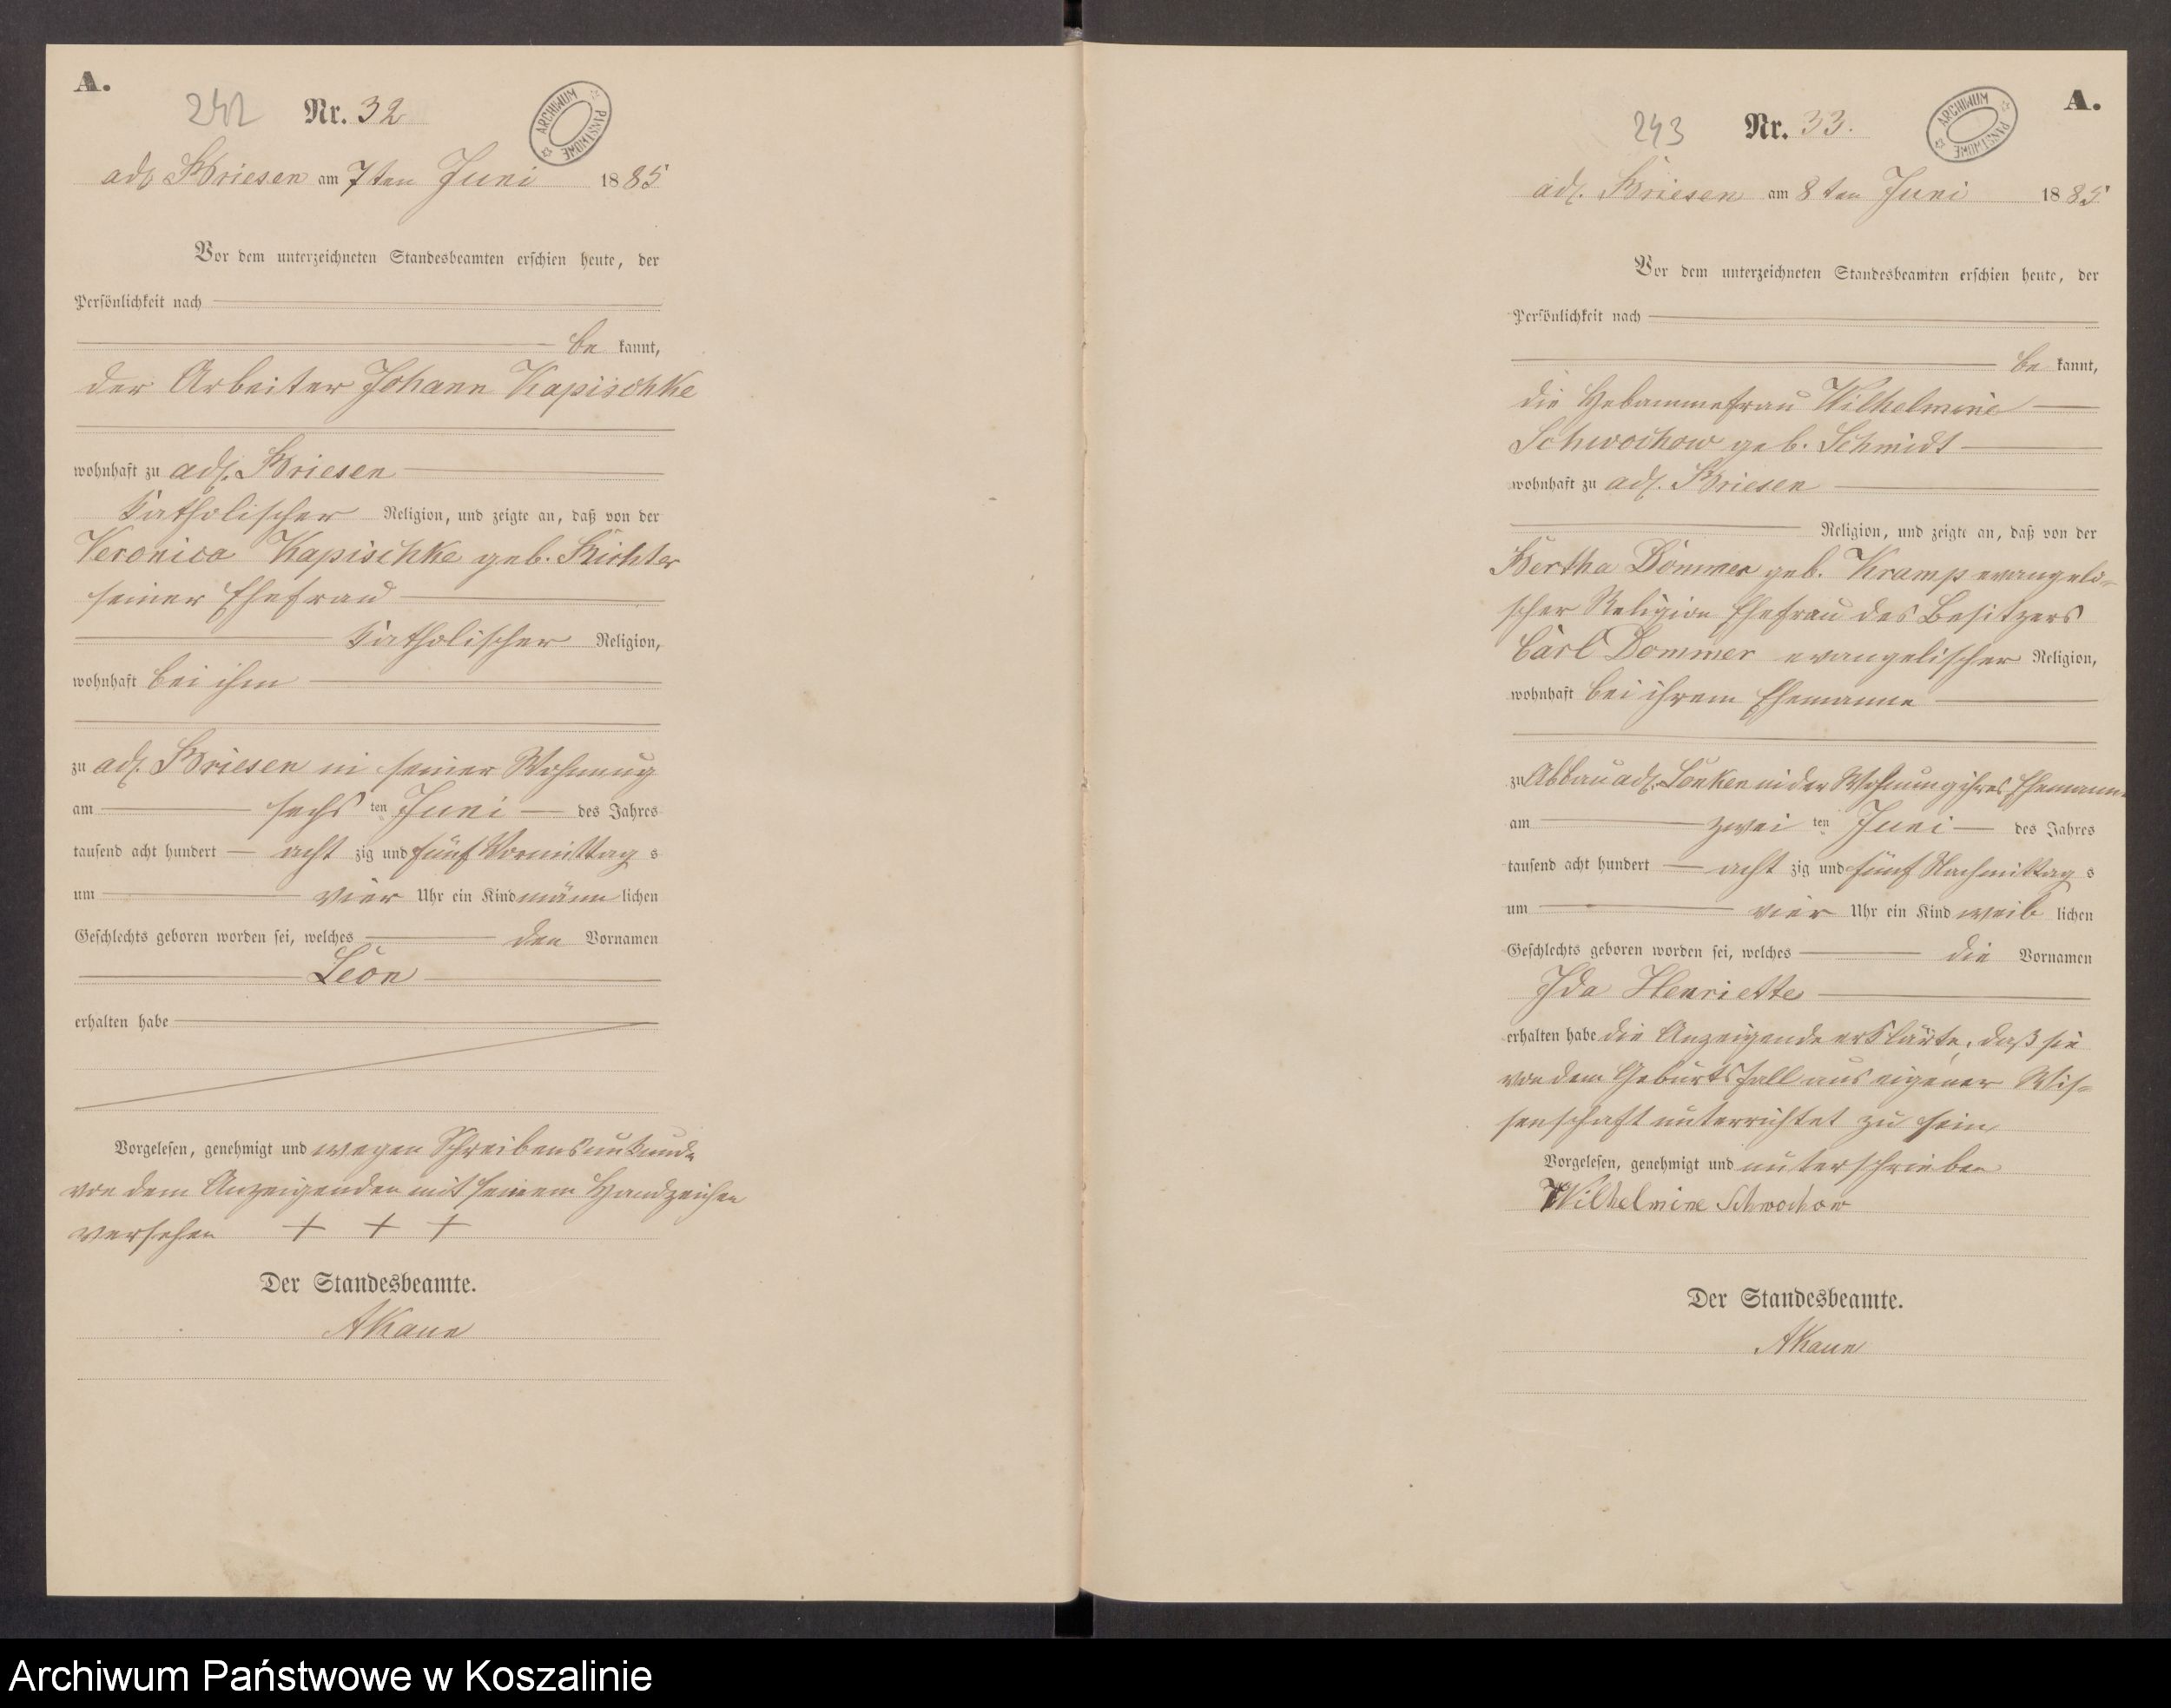 A.
242 Nr. 32
ARCHIWUM PAŃSTWOWE
adl. Briesen am 7ten Juni 1885
Vor dem unterzeichneten Standesbeamten erschien heute, der
Persönlichkeit nach
be kannt,
der Arbeiter Johann Kapischke
wohnhaft zu adl. Briesen
katholischer Religion, und zeigte an, daß von der
Veronica Kapischke geb. Richter
seiner Ehefrau
katholischer Religion,
wohnhaft bei ihm
zu adl. Briesen in seiner Wohnung
am sechs ten Juni des Jahres
tausend acht hundert acht zig und fünf Vormittag s
um vier Uhr ein Kind männ lichen
Geschlechts geboren worden sei, welches den Vornamen
Leon
erhalten habe
Vorgelesen, genehmigt und wegen Schreibensunkunde
von dem Anzeigenden mit seinem Handzeichen
versehen + + +
Der Standesbeamte.
AKaun
A.
243 Nr. 33.
ARCHIWUM PAŃSTWOWE
adl. Briesen am 8ten Juni 1885
Vor dem unterzeichneten Standesbeamten erschien heute, der
Persönlichkeit nach
be kannt,
die Hebammefrau Wilhelmine
Schwochow geb. Schmidt
wohnhaft zu adl. Briesen
Religion, und zeigte an, daß von der
Bertha Dommer geb. Kramp evangeli-
scher Religion Ehefrau des Besitzers
Carl Dommer evangelischer Religion,
wohnhaft bei ihrem Ehemanne
zu Abbau adl. Lonken in der Wohnung ihres Ehemanns
am zwei ten Juni des Jahres
tausend acht hundert acht zig und fünf Nachmittag s
um vier Uhr ein Kind weib lichen
Geschlechts geboren worden sei, welches die Vornamen
Ida Henriette
erhalten habe die Anzeigende erklärte, daß sie
von dem Geburtsfall aus eigener Wis-
senschaft unterrichtet zu sein
Vorgelesen, genehmigt und unterschrieben
Wilhelmine Schwochow
Der Standesbeamte.
AKaun
Archiwum Państwowe w Koszalinie